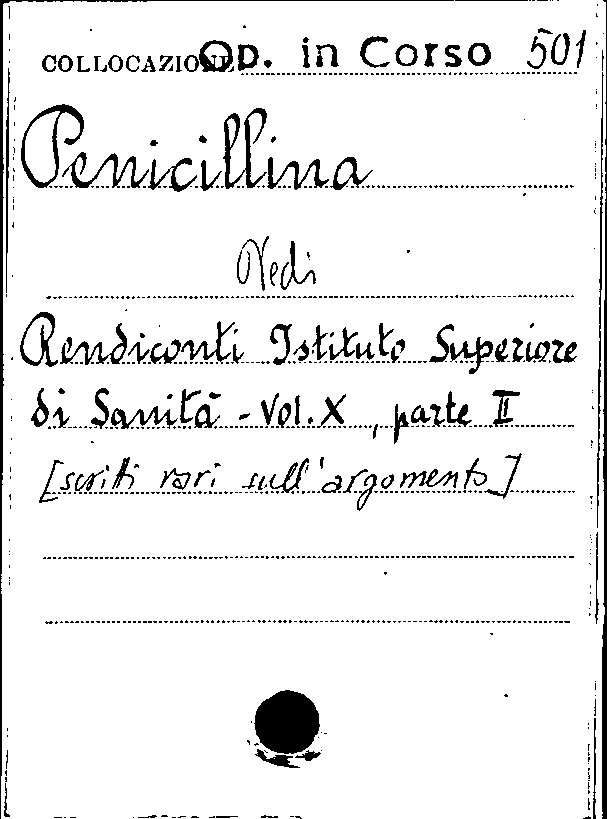 COLLOCAZIONE Op. in Corso 501
Penicillina
Vedi
Rendiconti Istituto Superiore
di Sanità - Vol. X, parte II
[scritti vari sull'argomento]